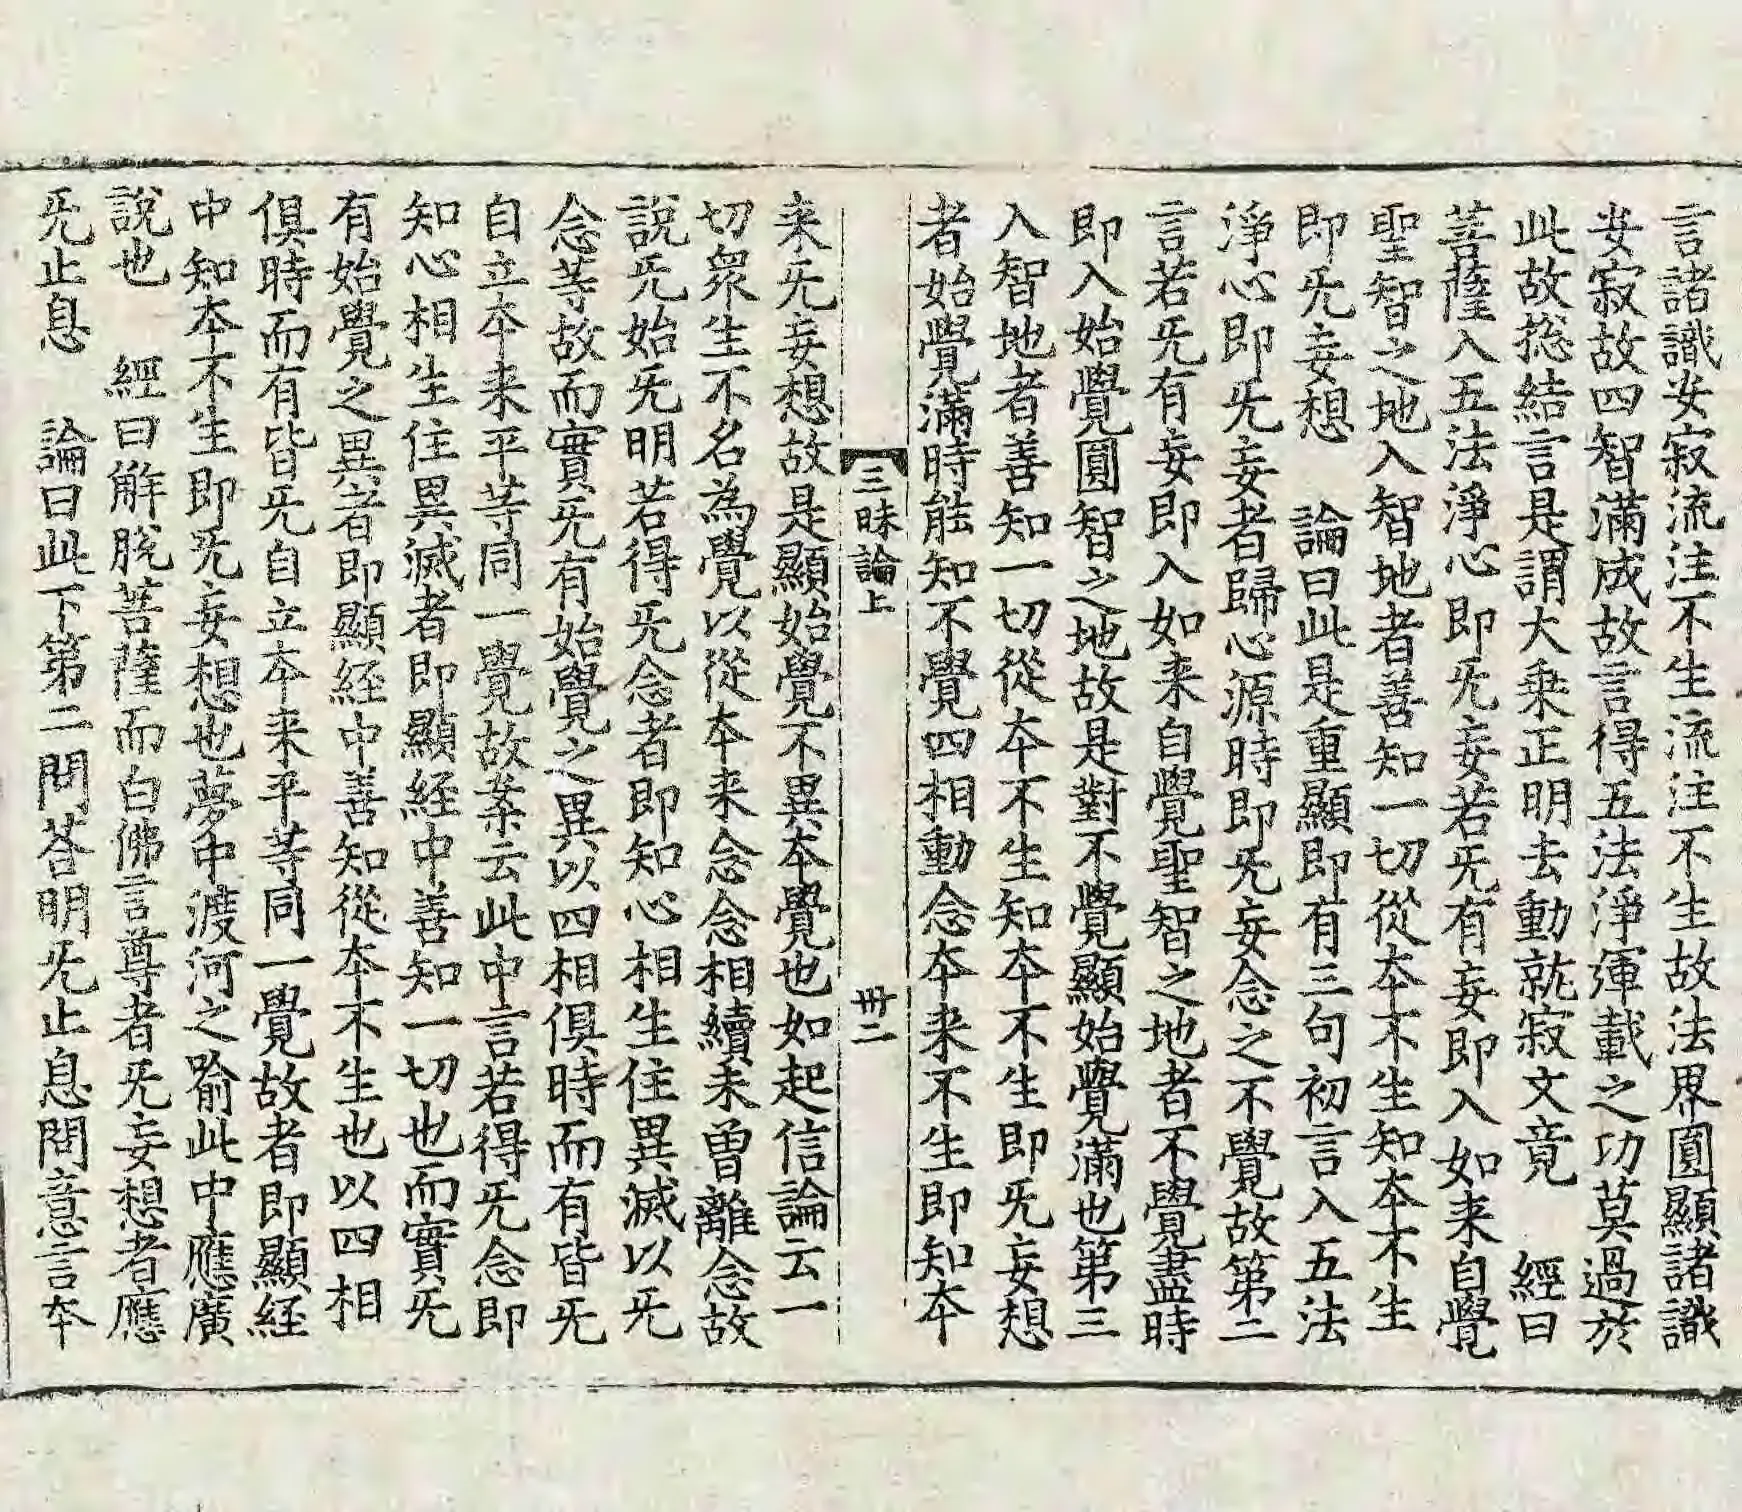 言諸識安寂流注不生流注不生故法界圓顯諸識
安寂故四智滿成故言得五法淨運載之功莫過於
此故捴結言是謂大乘正明去動就寂文竟　經曰
菩薩入五法淨心即旡妄若旡有妄即入如来自覺
聖智之地入智地者善知一切從夲不生知夲不生
即旡妄想　論曰此是重顯即有三句初言入五法
淨心即旡妄者歸心源時即旡妄念之不覺故第二
言若旡有妄即入如来自覺聖智之地者不覺盡時
即入始覺圓智之地故是對不覺顯始覺滿也第三
入智地者善知一切從夲不生知夲不生即旡妄想
者始覺滿時能知不覺四相動念夲来不生即知夲
三昧論上　卌二
来旡妄想故是顯始覺不異夲覺也如起信論云一
切衆生不名為覺以從夲来念念相續未曽離念故
說旡始旡明若得旡念者即知心相生住異滅以旡
念等故而實旡有始覺之異以四相俱時而有皆旡
自立夲来平等同一覺故案云此中言若得旡念即
知心相生住異滅者即顯経中善知一切也而實旡
有始覺之異者即顯経中善知從夲不生也以四相
俱時而有皆旡自立夲来平等同一覺故者即顯経
中知夲不生即旡妄想也夢中渡河之喻此中應廣
說也　經曰解脫菩薩而白佛言尊者旡妄想者應
旡止息　論曰此下第二問荅明旡止息問意言夲